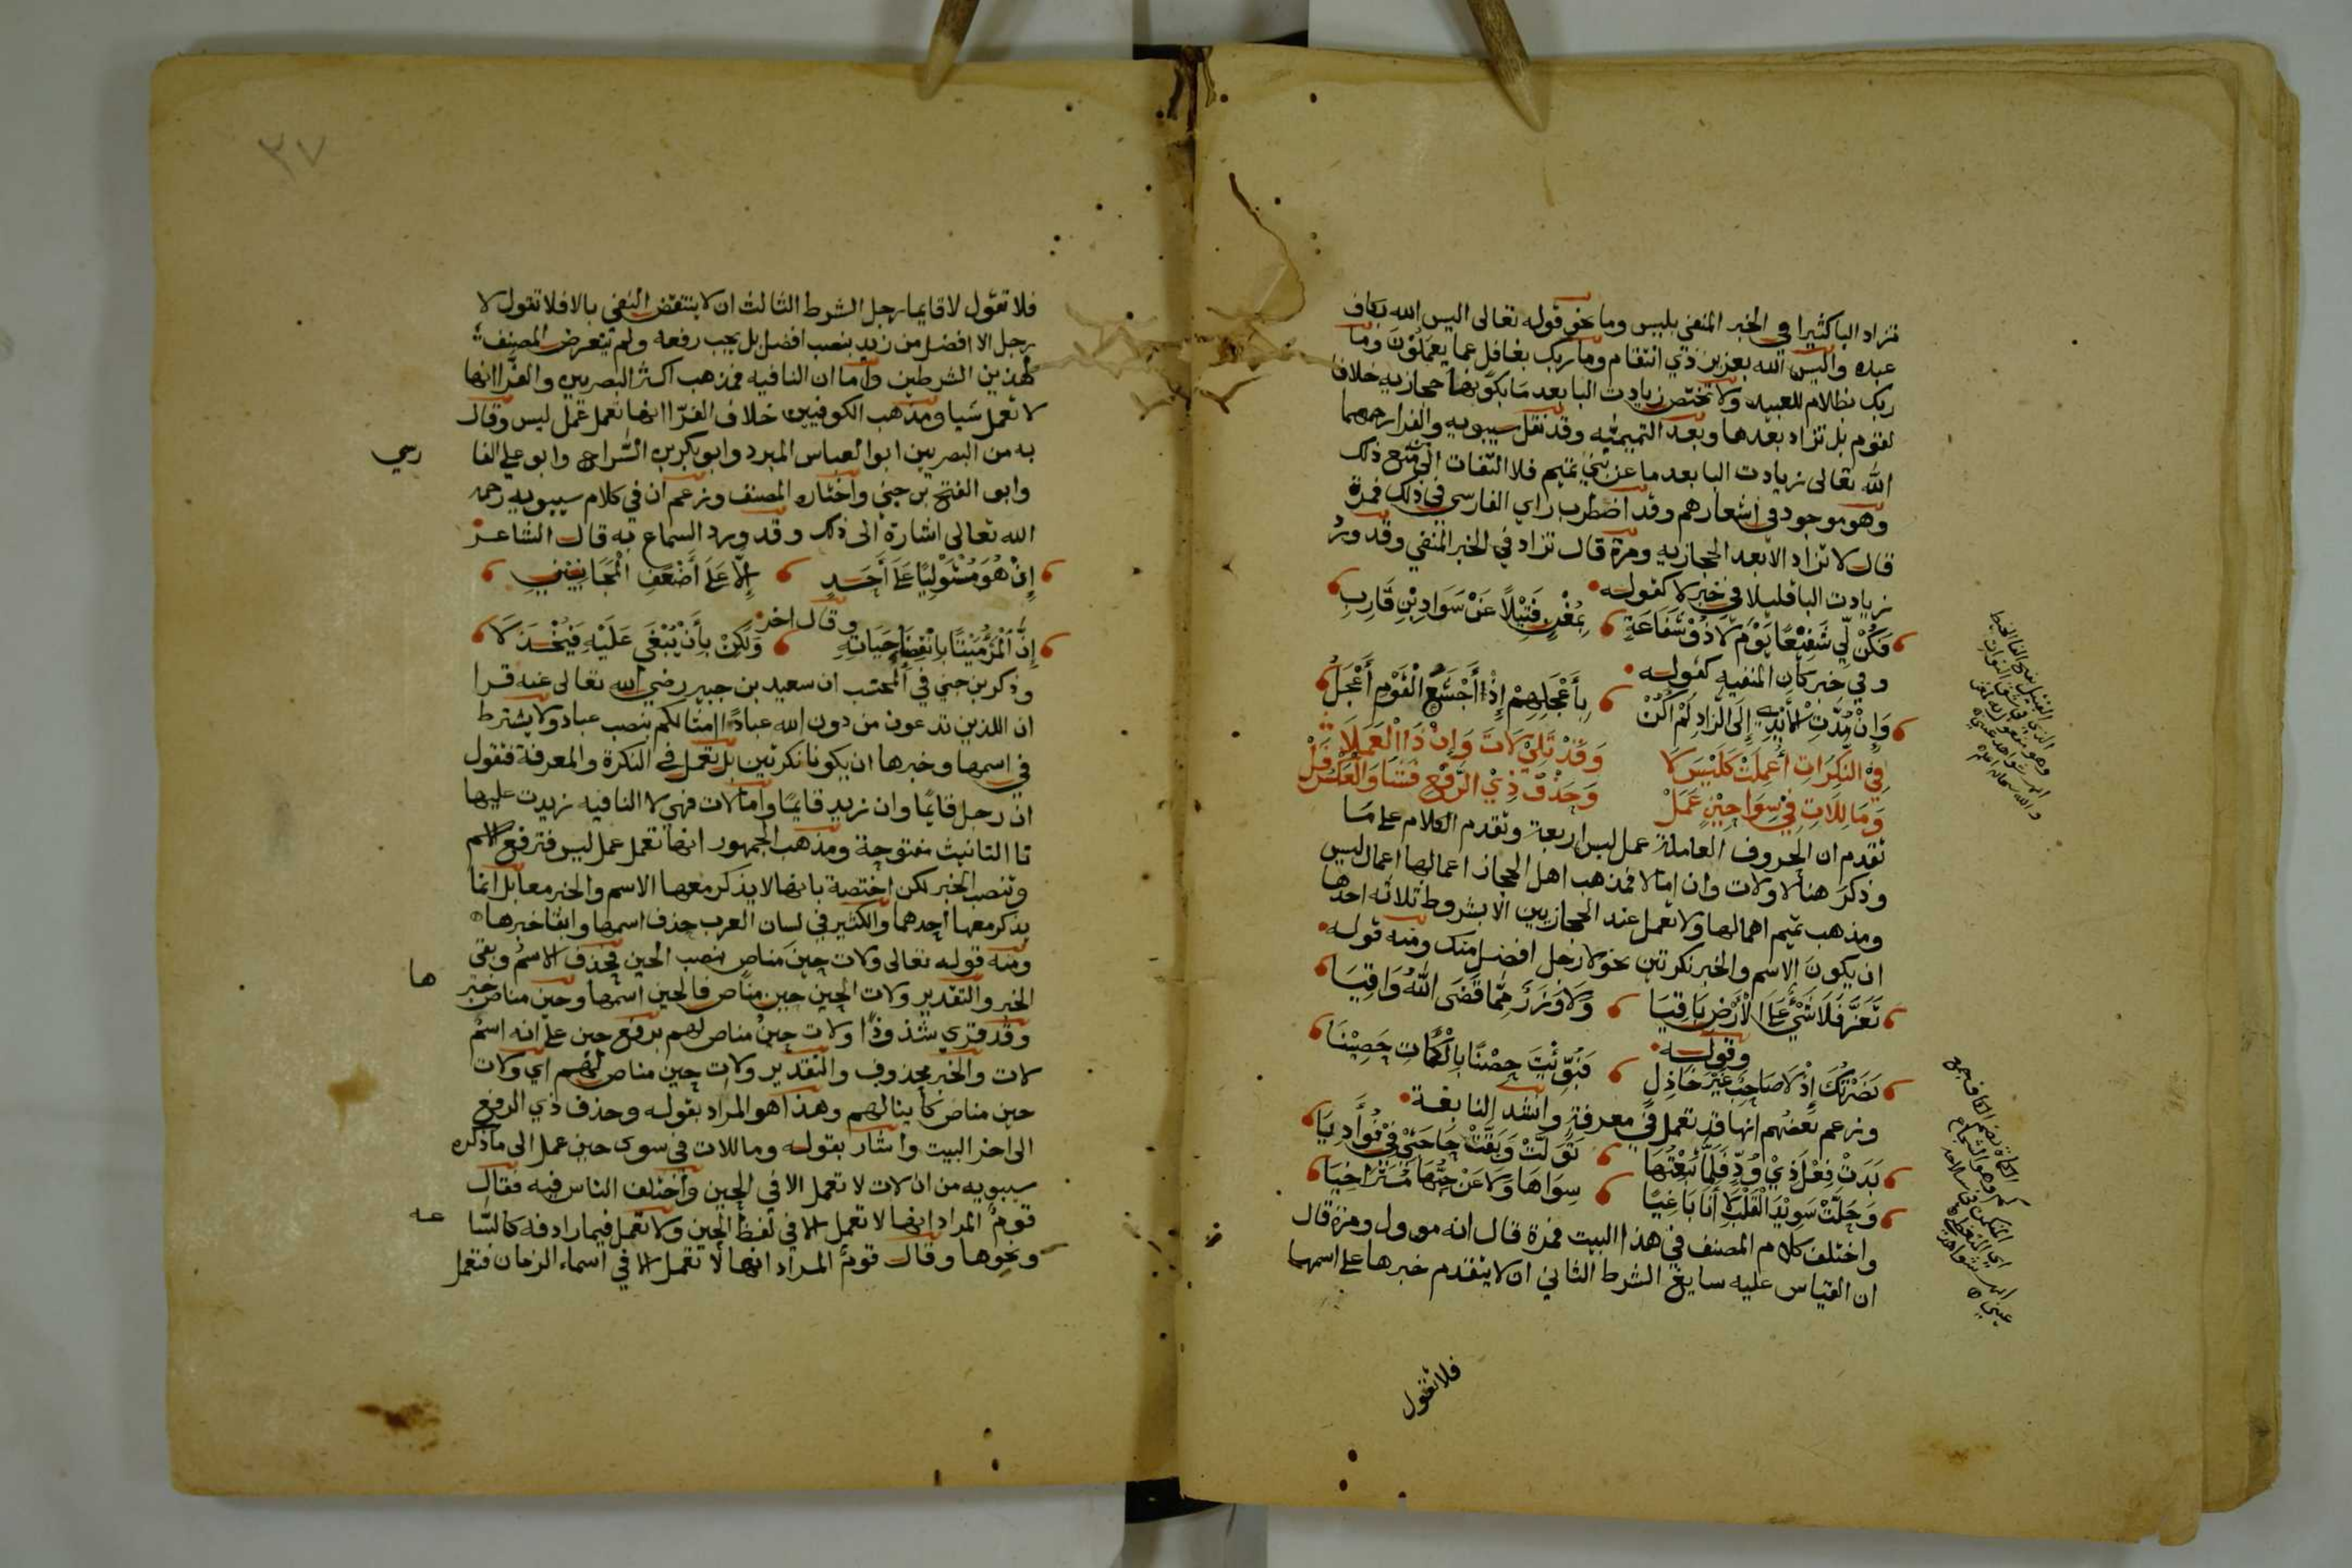 تزاد البا كثيرا في الخبر المنفي بليس وما نحو قوله تعالى اليس الله بكاف
عبده واليس الله بعزيز ذي انتقام وما ربك بغافل عما يعملون وما
ربك بظلام للعبيد ولا تختص زيادت البا بعد ما بكونها حجازيه خلافا
لقوم بل تزاد بعدها وبعد التميميه وقد نقل سيبويه والفرا رحمهما
الله تعالى زيادت البا بعد ما عن بني تميم فلا التفات الى منع ذلك
وهو موجود في اشعارهم وقد اضطرب راي الفارسي في ذلك فمرة
قال لا تزاد الا بعد الحجازيه ومرة قال تزاد في الخبر المنفي وقد ورد
زيادت البا قليلا في خبر لا كقوله
فَكُنْ لِّي شَفِيْعًا يَوْمَ لَا ذُوْ شَفَاعَةٍ بِمُغْنٍ فَتِيْلاً عَنْ سَوَادِ بْنِ قَارِبِ
وفي خبر كان المنفيه كقوله
وَإِنْ مُدَّتِ الْأَيْدِي إِلَى الزَّادِ لَمْ أَكُنْ بِأَعْجَلِهِمْ إِذْ أَجْشَعُ الْقَوْمِ أَعْجَلُ
فِي النَّكِرَاتِ أُعْمِلَتْ كَلَيْسَ لَا وَقَدْ تَلِيْ لَاتَ وَإِنْ ذَا الْعَمَلَا
وَمَا لِلَاتِ فِيْ سِوَا حِيْنٍ عَمَلْ وَحَذْفُ ذِيْ الرَّفْعِ فَشَا وَالْعَكْسُ قَلْ
تقدم ان الحروف العاملة عمل ليس اربعة وتقدم الكلام على ما
وذكر هنا لا ولات وان اما لا فمذهب اهل الحجاز اعمالها اعمال ليس
ومذهب تميم اهمالها ولا تعمل عند الحجازيين الا بشروط ثلاثه احدها
ان يكون الاسم والخبر نكرتين نحو لا رجل افضل منك ومنه قوله
تَعَزَّ فَلَا شَيْءٌ عَلَى الْأَرْضِ بَاقِيَا وَلَا وَزَرٌ مِّمَّا قَضَى اللهُ وَاقِيَا
وقوله
نَصَرْتُكَ إِذْ لَا صَاحِبٌ غَيْرَ خَاذِلٍ فَبُوِّئْتَ حِصْنًا بِالْكُمَاتِ حَصِيْنَا
وزعم بعضهم انها قد تعمل في معرفة وانشد النابغة
بَدَتْ فِعْلَ ذِيْ وُدٍّ فَلَمَّا تَبِعْتُهَا تَوَلَّتْ وَبَقَّتْ حَاجَتِيْ فِيْ فُؤَادِيَا
وَحَلَّتْ سَوِيْدَا الْقَلْبِ لَا أَنَا بَاغِيًا سِوَاهَا وَلَا عَنْ حُبِّهَا مُتَرَاخِيَا
واختلف كلام المصنف في هذا البيت فمرة قال انه موول ومرة قال
ان القياس عليه سايغ الشرط الثاني ان لا يتقدم خبرها على اسمها
فلا تقول
٣٧
فلا تقول لا قايما رجل الشرط الثالث ان لا ينتقض النفي بالا فلا تقول لا
رجل الا افضل من زيد بنصب افضل بل يجب رفعه ولم يتعرض المصنف
لهذين الشرطين واما ان النافيه فمذهب اكثر البصريين والفرا انها
لا تعمل شيا ومذهب الكوفيين خلاف الفرّا انها تعمل عمل ليس وقال
به من البصريين ابو العباس المبرد وابو بكر بن السّراج وابو علي الفا
رسي
وابو الفتح بن جني واختاره المصنف وزعم ان في كلام سيبويه رحمه
الله تعالى اشارة الى ذلك وقد ورد السماع به قال الشاعر
إِنْ هُوَ مُسْتَوْلِيًا عَلَى أَحَدٍ إِلَّا عَلَى أَضْعَفِ الْمَجَانِيْنِ
وقال اخر
إِنِ الْمَرْءُ مَيْتًا بِانْقِضَاءِ حَيَاتِهِ وَلَكِنْ بِأَنْ يُبْغَى عَلَيْهِ فَيُخْذَلَا
وذكر بن جني في المحتسب ان سعيد بن جبير رضي الله تعالى عنه قرا
ان اللذين تدعون من دون الله عبادًا امثالكم بنصب عباد ولا يشترط
في اسمها وخبرها ان يكونا نكرتين بل تعمل في النكرة والمعرفة فتقول
ان رجل قايمًا وان زيد قايمًا واما لات فهي لا النافيه زيدت عليها
تا التانيث مفتوحة ومذهب الجمهور انها تعمل عمل ليس فترفع الاسم
وتنصب الخبر لكن اختصة بانها لا يذكر معها الاسم والخبر معا بل انما
يذكر معها احدهما والكثير في لسان العرب حذف اسمها وابقا خبرها
ومنه قوله تعالى ولات حينَ مناص بنصب الحين فحذف الاسم وبقى
الخبر والتقدير ولات الحين حين مناص فالحين اسمها وحين مناص خبر
ها
وقد قرى شذوذًا ولات حينُ مناص لهم برفع حين على انه اسم
لات والخبر محذوف والتقدير ولات حين مناص لهم اي ولات
حين مناص كائنا لهم وهذا هو المراد بقوله وحذف ذي الرفع
الى اخر البيت واشار بقوله وما للات في سوى حين عمل الى ما ذكره
سيبويه من ان لات لا تعمل الا في الحين واختلف الناس فيه فقال
قوم المراد انها لا تعمل الا في لفظ الحين ولا تعمل فيما رادفه كالسّا
عه
ونحوها وقال قومٌ المراد انها لا تعمل الا في اسماء الزمان فتعمل